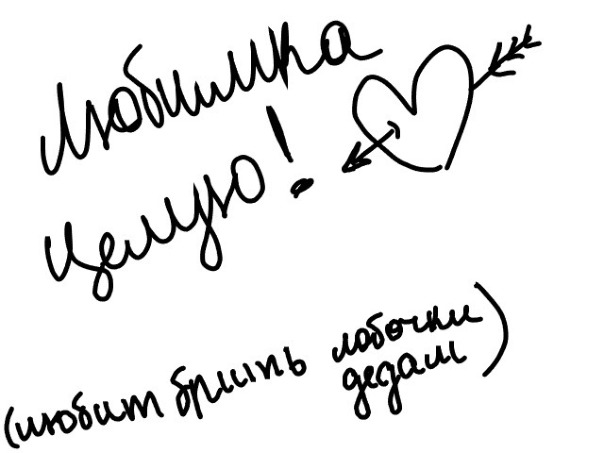 Любимка
целую!
(любит брить лобочки
дедам)